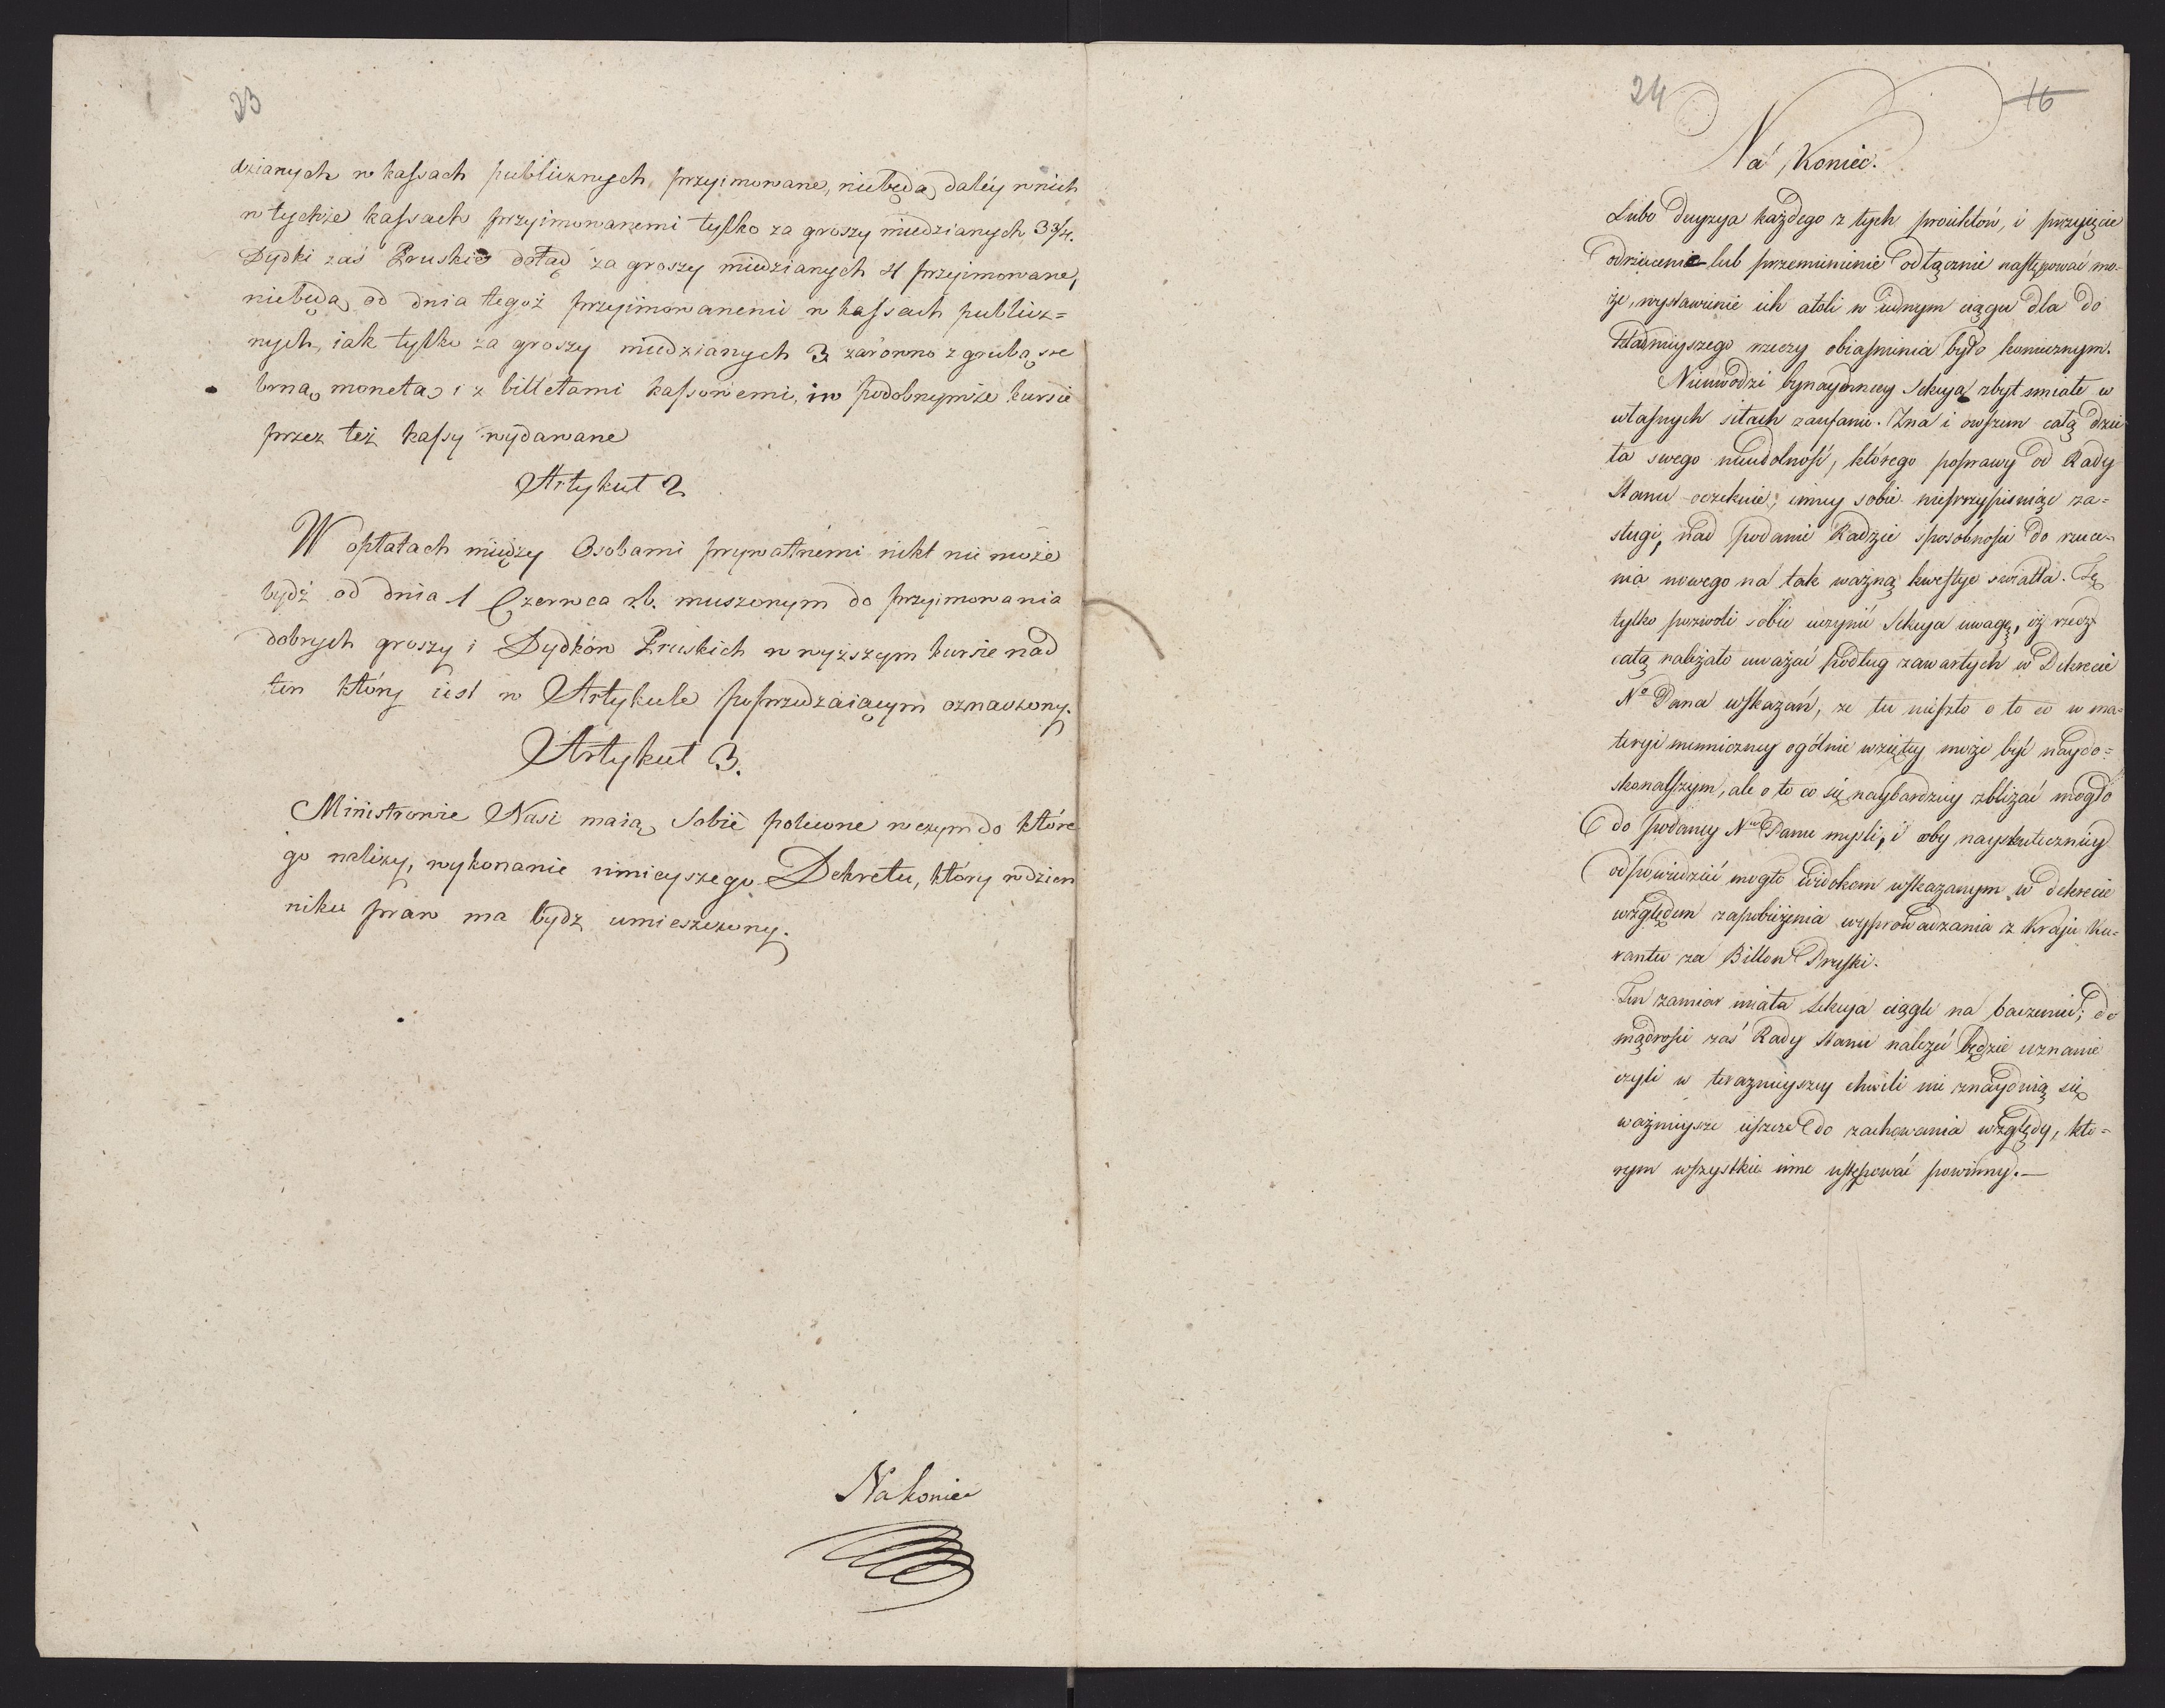 23
dzianych w kassach publicznych przyimowane, niebędą daléy w nich
w tychże kassach przyimowanemi tylko za groszy miedzianych 3 3/4.
Dydki zaś Pruskie dotąd za groszy miedzianych 4 przyimowane,
niebędą od dnia tegoż przyimowanemi w kassach publicz=
nych, iak tylko za groszy miedzianych 3 zarówno z grubą sre
brną monetą i z billetami kassowemi, w podobnymże kursie
przez też kassy wydawane
Artykuł 2
W opłatach między Osobami prywatnemi nikt nie może
bydź od dnia 1 Czerwca r.b. muszonym do przyimowania
dobrych groszy i Dydków Pruskich w wyższym kursie nad
ten który iest w Artykule poprzedzaiącym oznaczony.
Artykuł 3.
Ministrowie Nasi maią sobie polecone w czym do które
go należy, wykonanie ninieyszego Dekretu, który w dzien
niku praw ma bydź umieszczony.
Nakoniec
24
16
Na Koniec.
Lubo decyzya każdego z tych proiektów, i przyięcie
odrzucenie lub przemienienie odłącznie następować mo-
że, wystawienie ich atoli w iednym ciągu dla do
kładnieyszego rzeczy obiaśnienia było koniecznym.
Nieuwodzi bynaymniey Sekcya zbyt smiałe w
własnych siłach zaufanie. Zna i owszem całą dzie
ła swego nieudolność, którego poprawy od Rady
Stanu oczekuie; inney sobie nieprzypisuiąc za=
sługi, nad podanie Radzie sposobności do rzuce-
nia nowego na tak ważną kwestye swiatła. Tę
tylko pozwoli sobie uczynić Sekcya uwagę, iż rzecz
całą należało uważać podług zawartych w Dekrecie
Nº Pana wskazań, że tu nieszło o to co w ma=
teryi menniczney ogólnie wziętey może być naydo=
skonalszym, ale o to co się naybardziey zbliżać mogło
do podaney Nº Panu myśli, i aby nayskuteczniey
odpowiedzieć mogło widokom wskazanym w dekrecie
względem zapobieżenia wyprowadzania z Kraju Ku=
rantu za Billon Pruski.
Ten zamiar miała Sekcya ciągle na baczeniu; do
mądrości zaś Rady Stanu należeć będzie uznanie
czyli w teraznieyszey chwili nie znayduią się
ważnieysze ieszcze do zachowania względy, któ=
rym wszystkie inne ustępować powinny.—